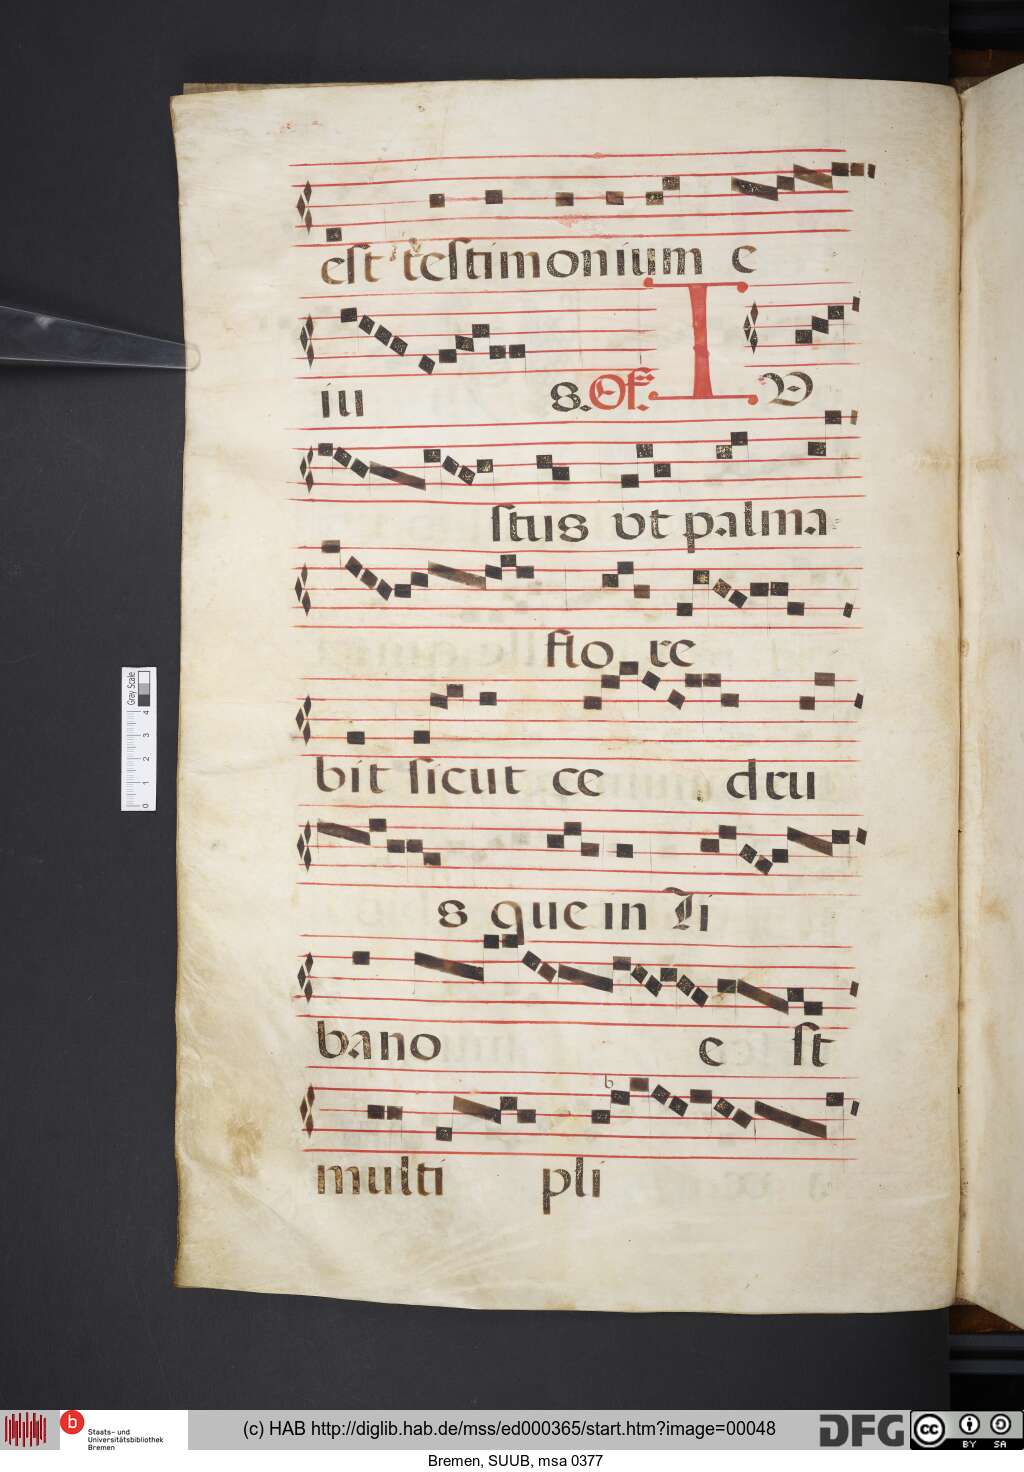 est testimonium e
ius. Of. IU
stus ut palma
flo re
bit sicut ce dru
s que in li
bano e st
b
multi pli
Gray Scale
0 1 2 3 4
b
Staats- und
Universitätsbibliothek
Bremen
(c) HAB http://diglib.hab.de/mss/ed000365/start.htm?image=00048
DFG
cc BY SA
Bremen, SUUB, msa 0377